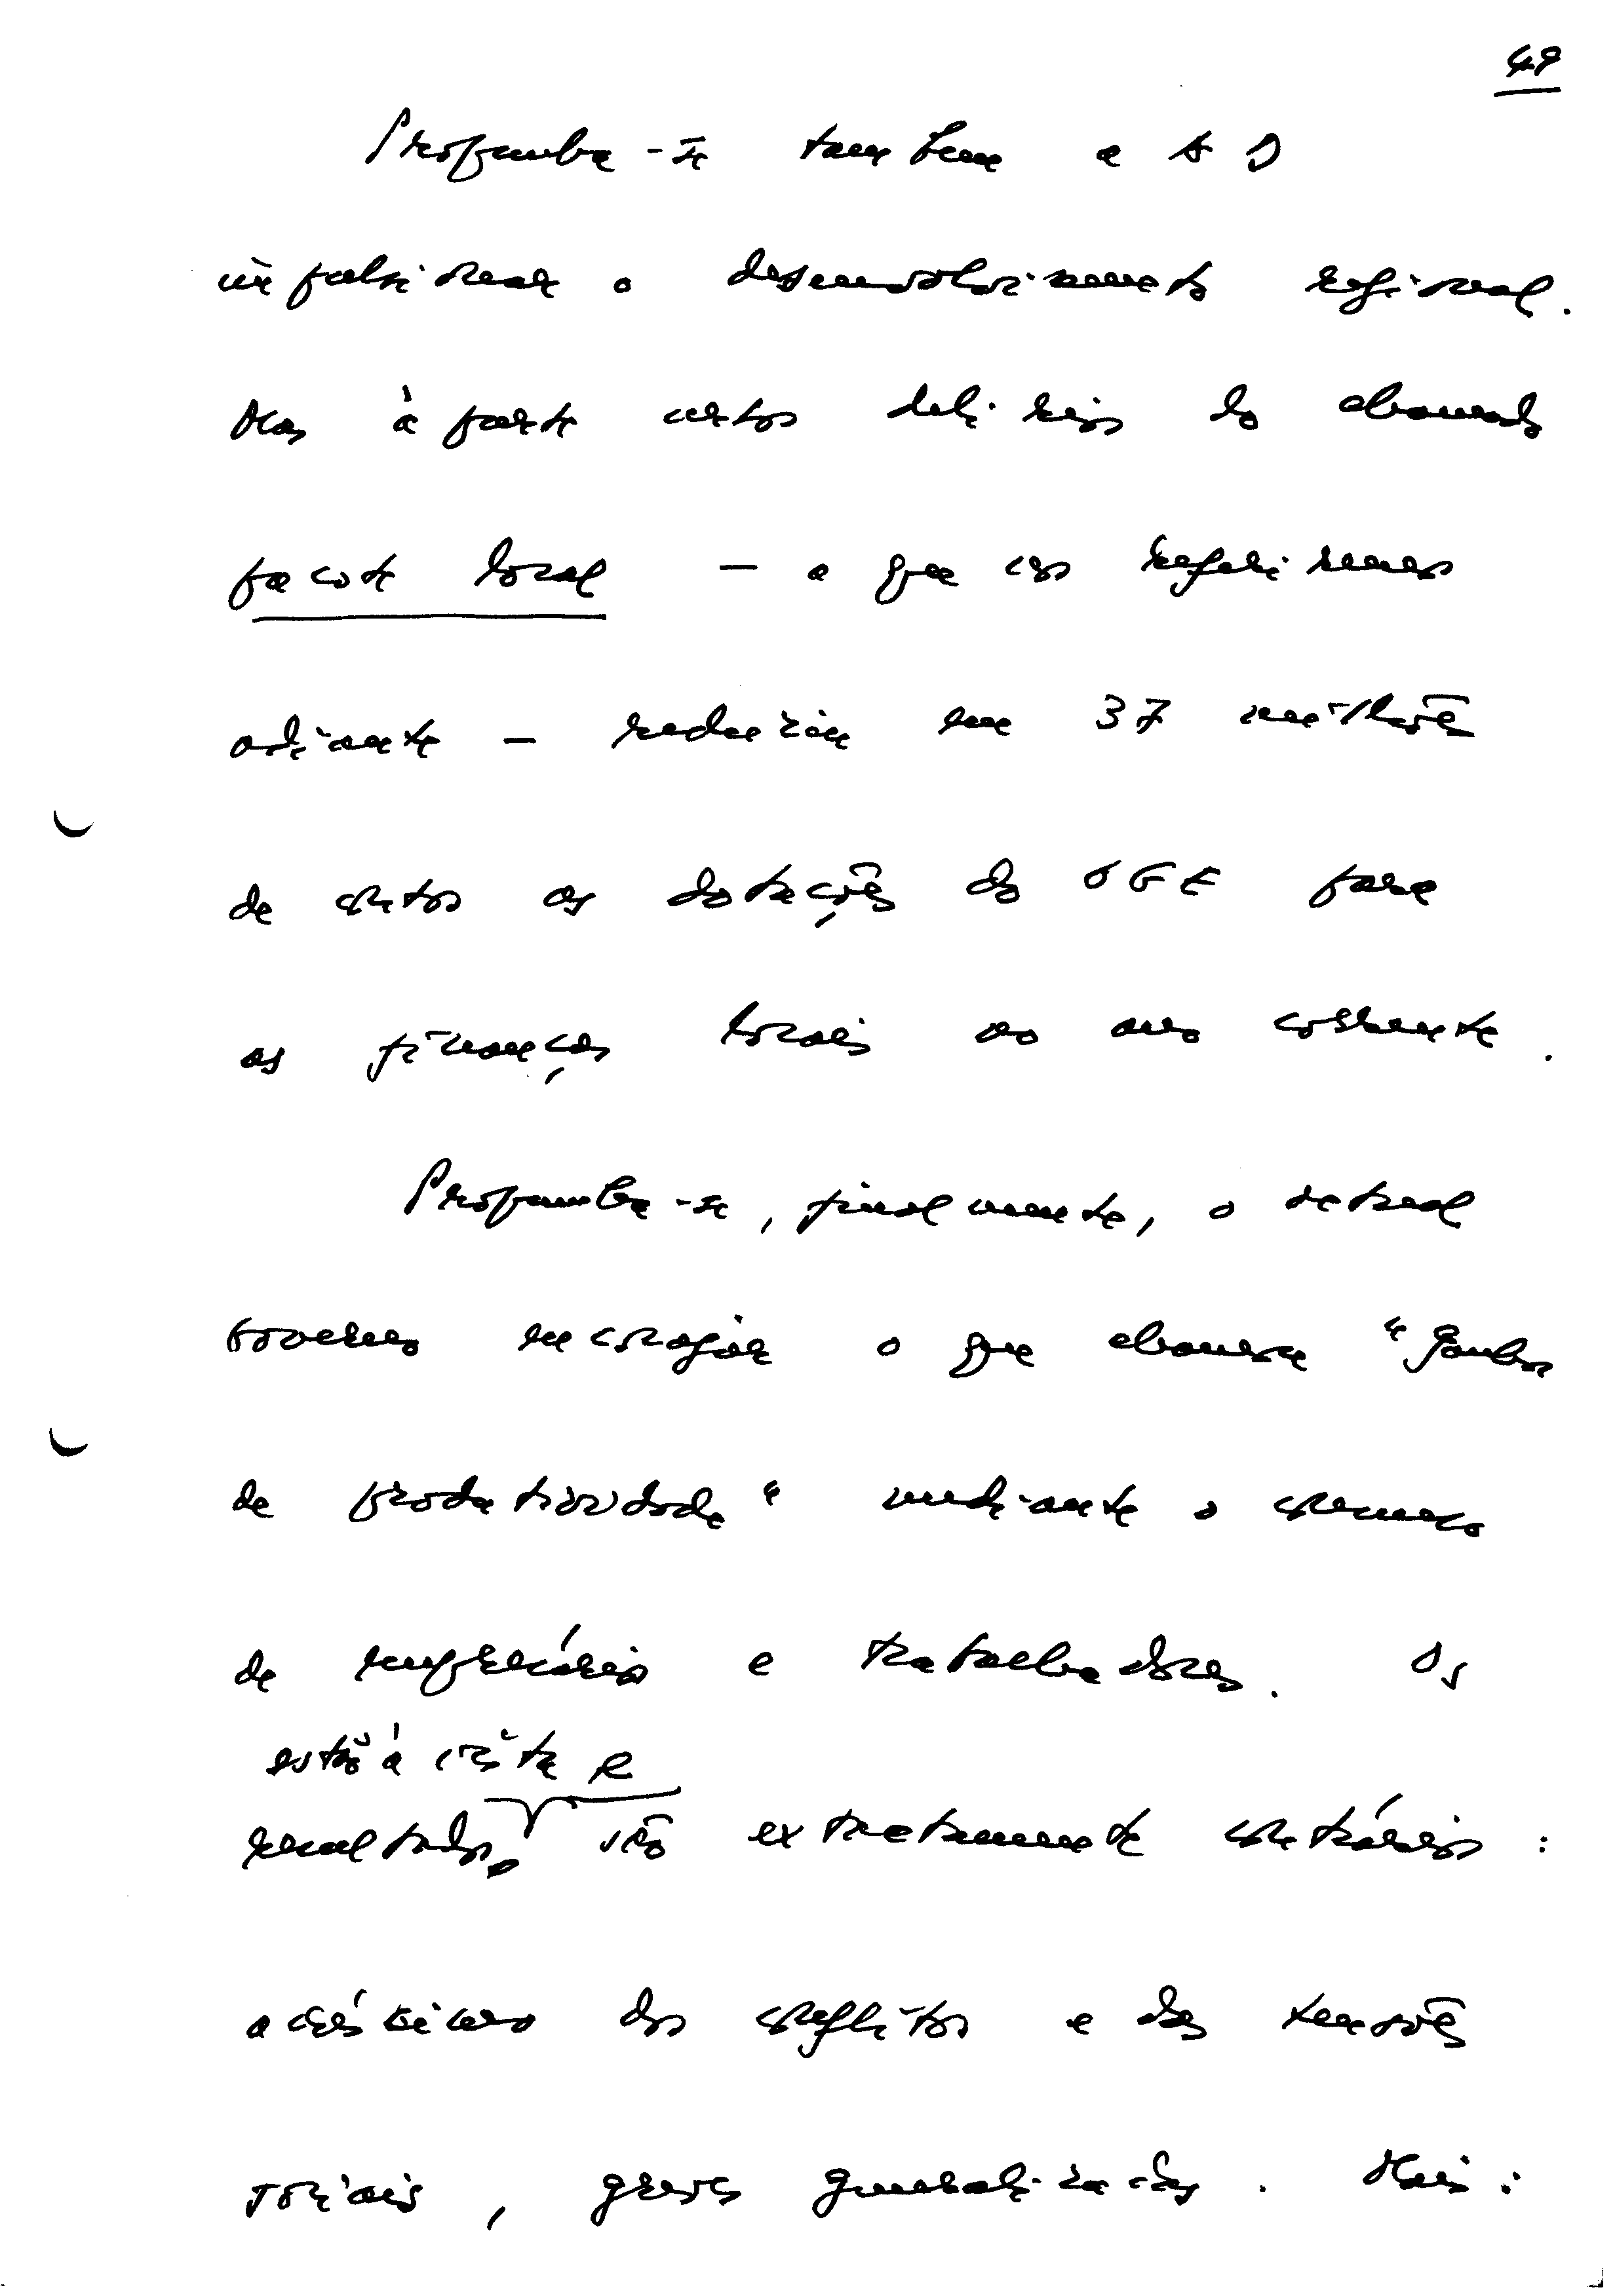 49
Propunha-se também a AD
impulsionar o desenvolvimento regional.
Mas à parte certos delírios do chamado
pacote local — a que nos referiremos
adiante — reduziu em 37 milhões
de contos as dotações do OGE para
as finanças locais no ano corrente.
Propunha-se, finalmente, o actual
governo encorajar o que chamava "Ganhos
de produtividade" mediante o consenso
de empresários e trabalhadores. Os
estão à vista e
resultados são exactamente contrários:
acréscimo dos conflitos e das tensões
sociais, greves generalizadas. Mais: